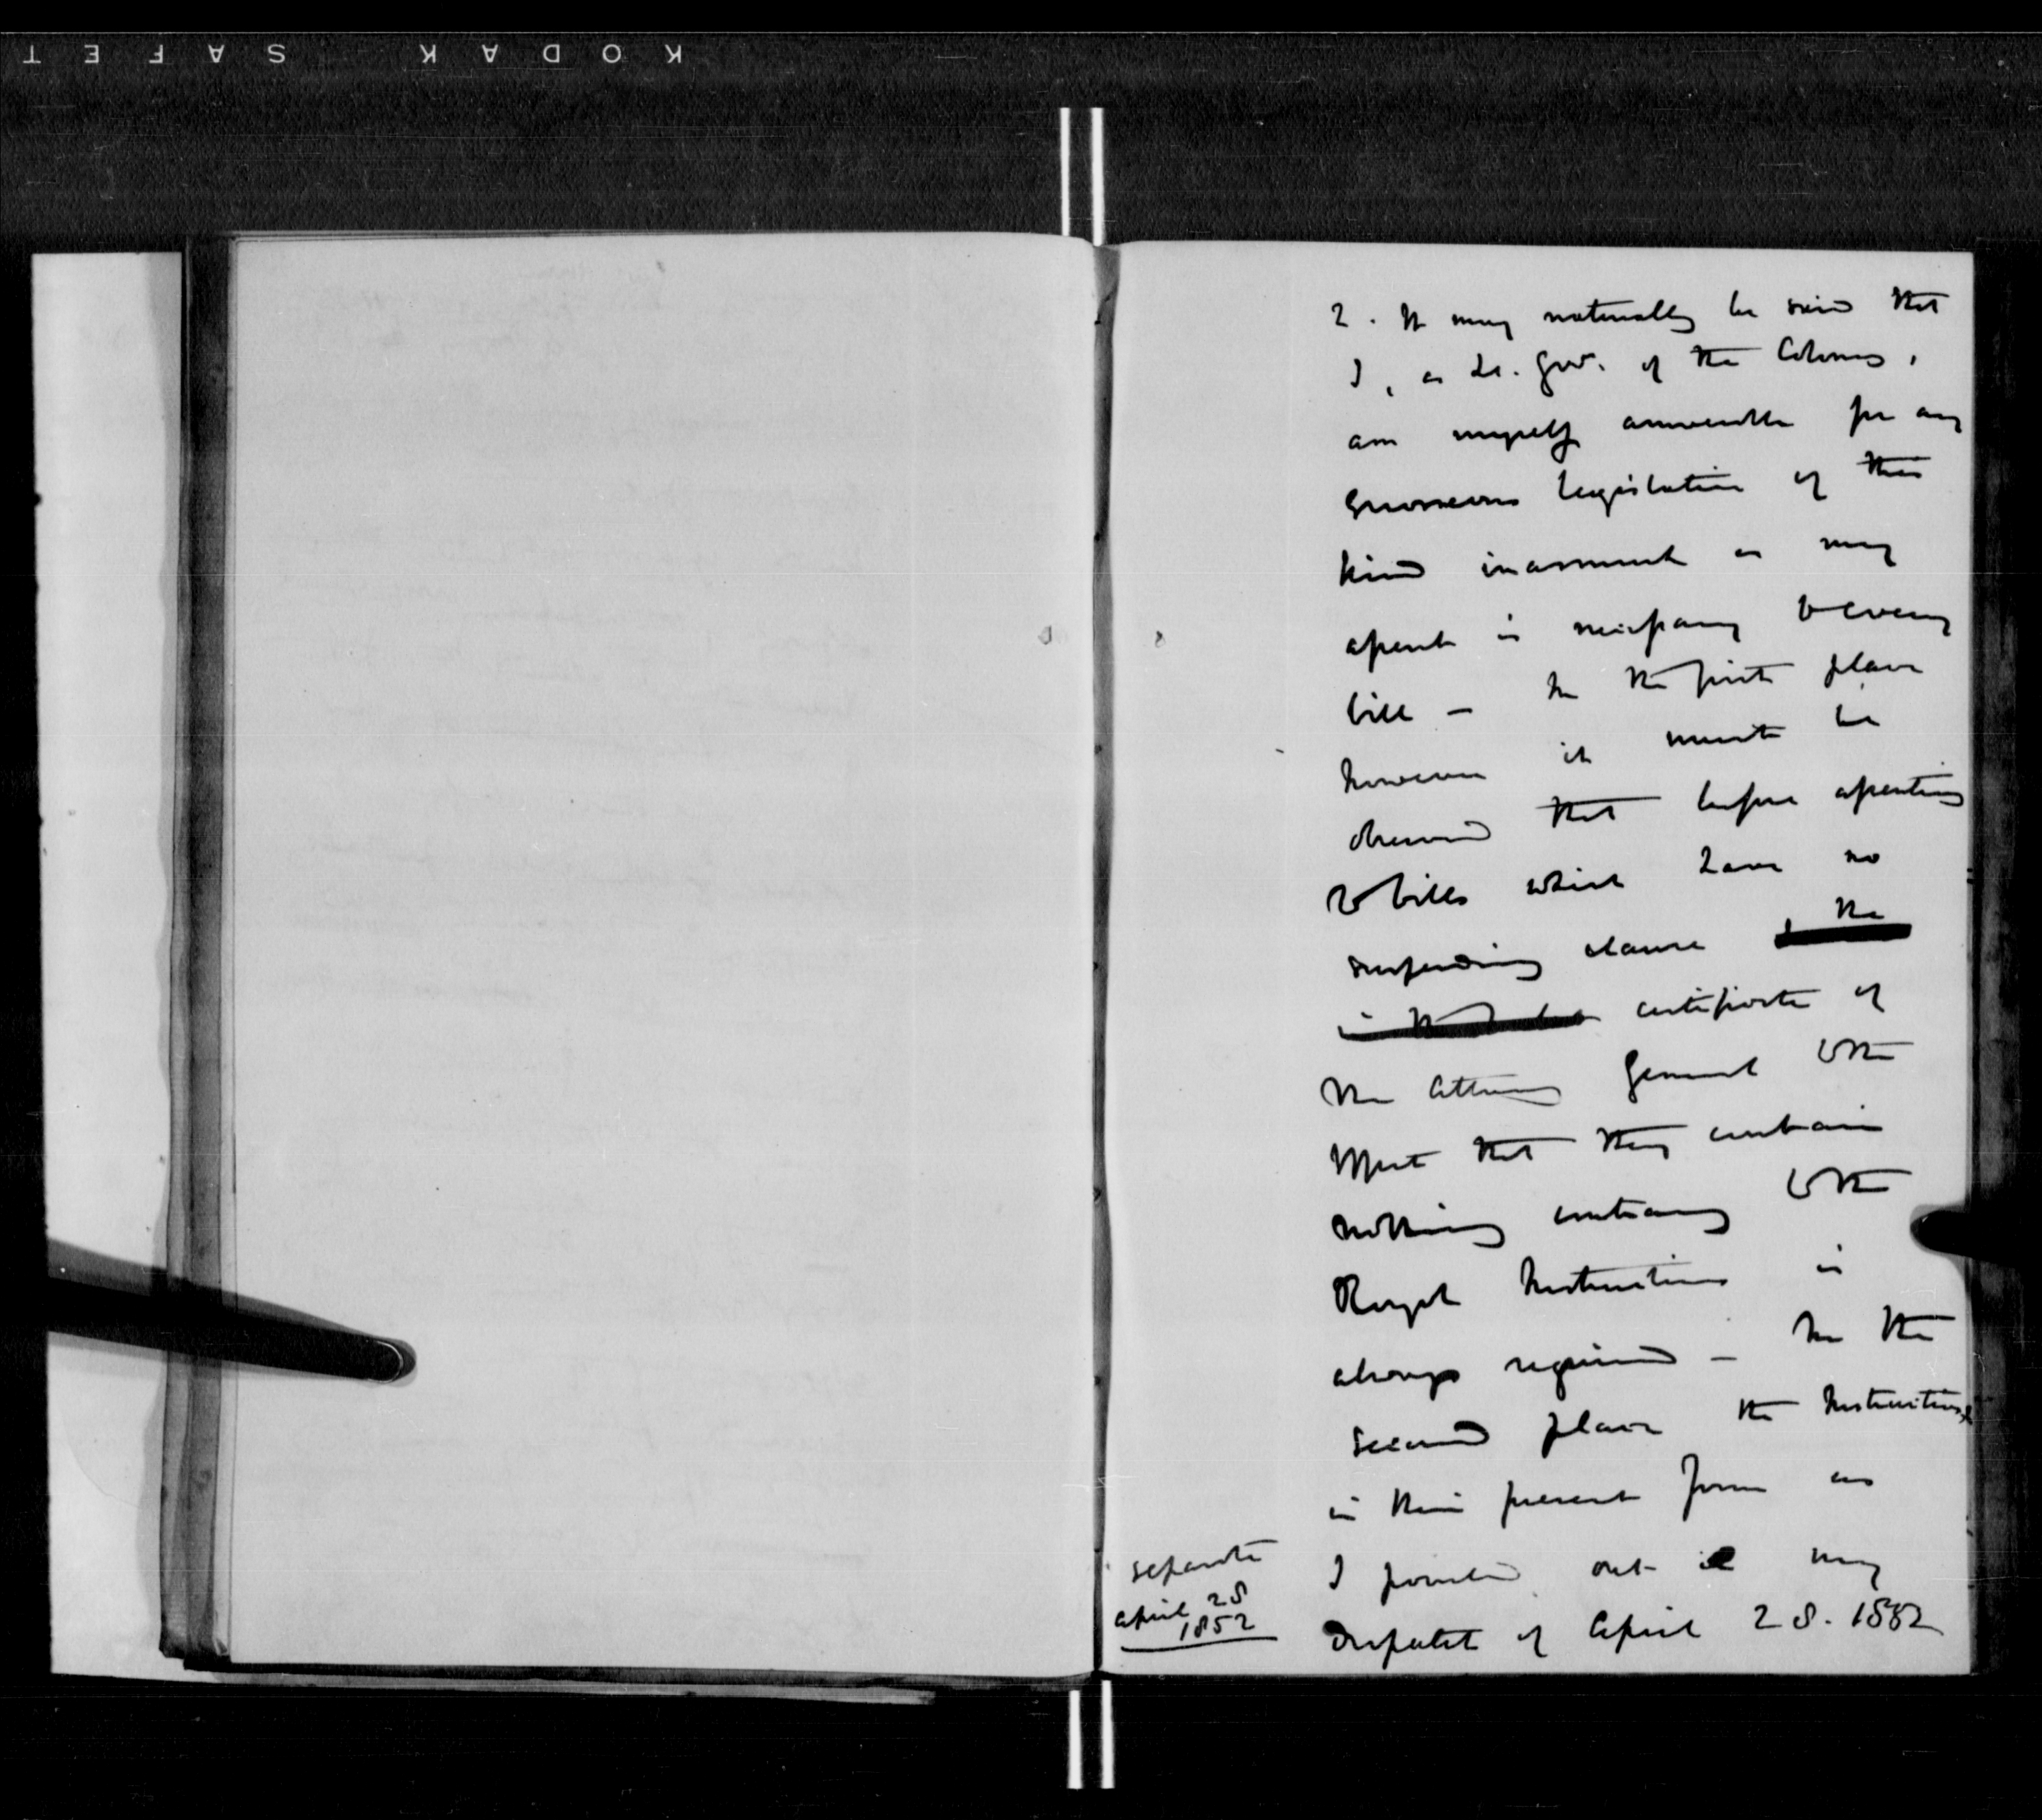 KODAK SAFET
2. It may naturally be said that
I, as Lt. Govr. of the Colony,
am myself answerable for any
erroneous legislation of this
kind inasmuch as my
assent is necessary to every
bill — In the first place
however it must be
observed that before assenting
to bills which have no
suspending clause the
certificate of
the Attorney General to the
effect that they contain
nothing contrary to the
Royal Instructions is
always required — In the
second place the Instructions
in their present form as
I pointed out in my
Despatch of April 28. 1852
separate
April 28
1852